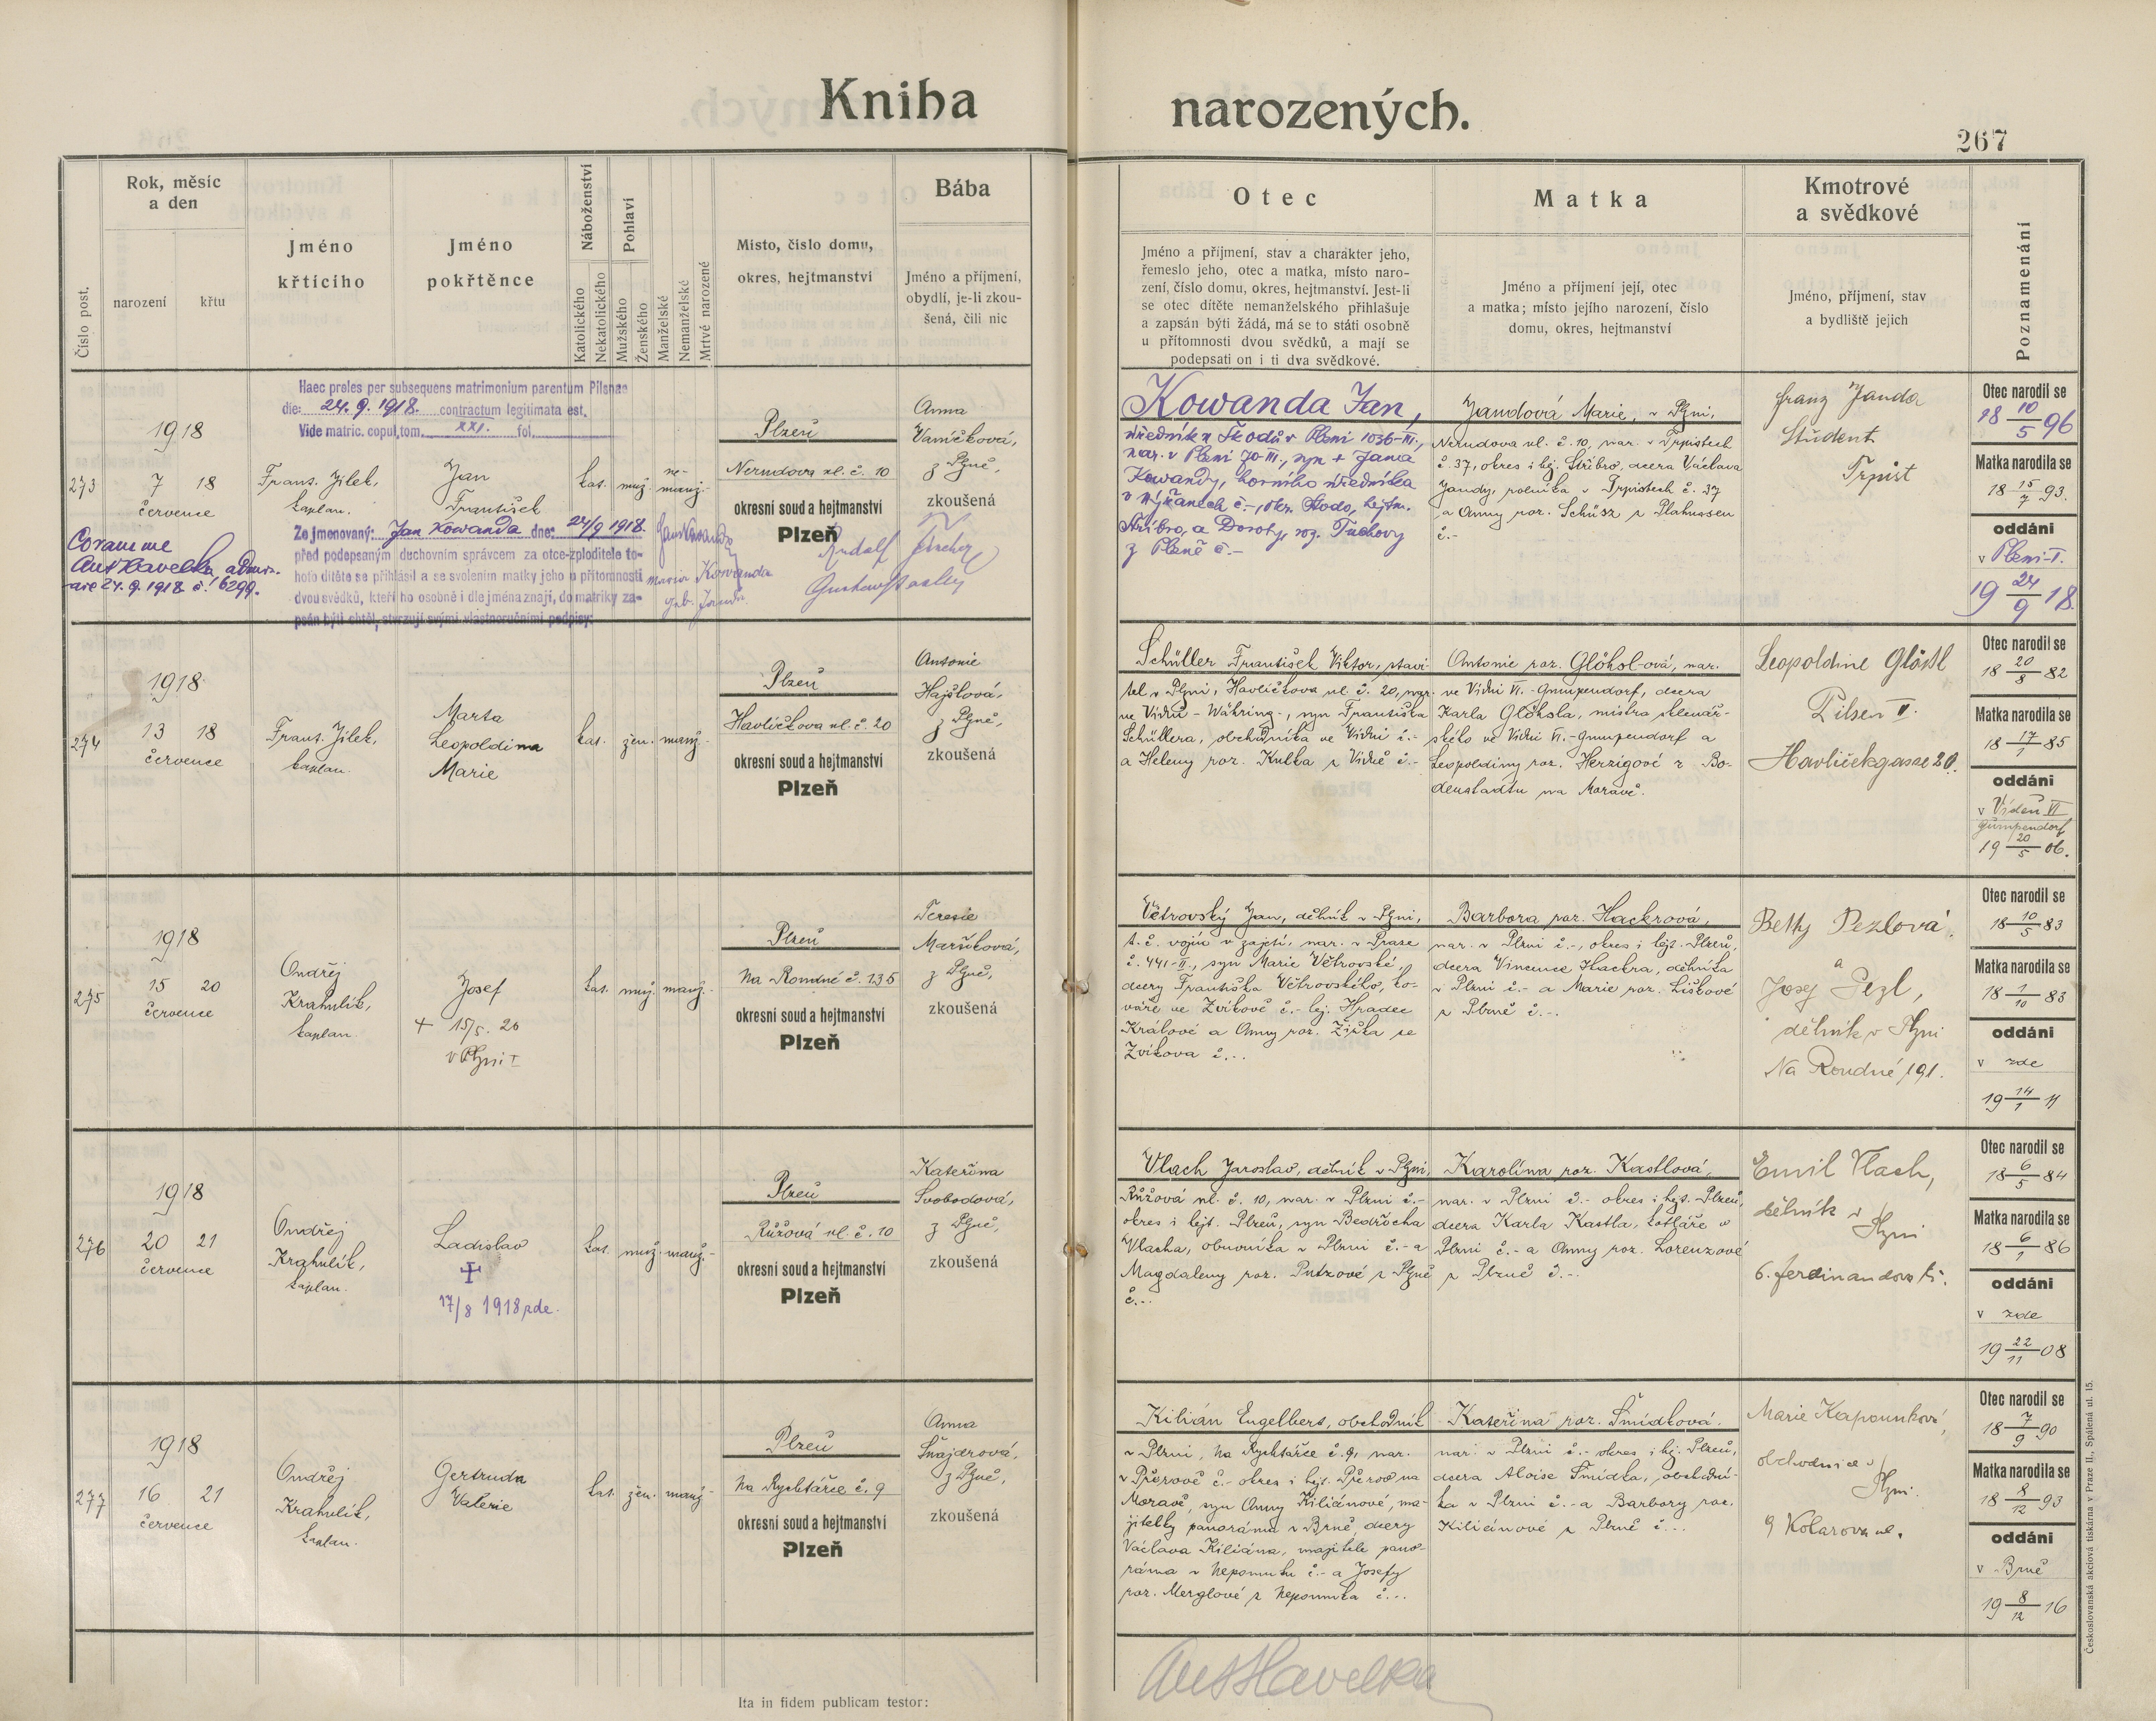 Kniha narozených.
267
Číslo post.
Rok, měsíc
a den
narození
křtu
Jméno
křtícího
Jméno
pokřtěnce
Náboženství
Katolického
Nekatolického
Pohlaví
Mužského
Ženského
Manželské
Nemanželské
Mrtvě narozené
Místo, číslo domu,
okres, hejtmanství
Bába
Jméno a příjmení,
obydlí, je-li zkou-
šená, čili nic
Otec
Jméno a příjmení, stav a charakter jeho,
řemeslo jeho, otec a matka, místo naro-
zení, číslo domu, okres, hejtmanství. Jest-li
se otec dítěte nemanželského přihlašuje
a zapsán býti žádá, má se to státi osobně
u přítomnosti dvou svědků, a mají se
podepsati on i ti dva svědkové.
Matka
Jméno a příjmení její, otec
a matka; místo jejího narození, číslo
domu, okres, hejtmanství
Kmotrové
a svědkové
Jméno, příjmení, stav
a bydliště jejich
Poznamenání
Haec proles per subsequens matrimonium parentum Pilsnae
die: 24. 9. 1918. contractum legitimata est.
Vide matric. copul. tom. XXI. fol.
273
1918
7 18
července
Frant. Jílek,
kaplan.
Jan
František
kat.
muž.
ne-
manž.
Plzeň
Nerudova ul. č. 10
okresní soud a hejtmanství
Plzeň
Anna
Vaníčková,
z Plzně,
zkoušená
Coram me
Ant Havelka, admin.
24. 9. 1918 č. 6299.
Ze jmenovaný: Jan Kowanda dne: 24/9 1918.
před podepsaným duchovním správcem za otce-zploditele to-
hoto dítěte se přihlásil a se svolením matky jeho u přítomnosti
dvou svědků, kteří ho osobně i dle jména znají, do matriky za-
psán býti chtěl, stvrzují svými vlastnoručními podpisy:
Jan Kowanda
Maria Kowanda
geb. Janda
Rudolf Fischer
Kowanda Jan,
úředník u Škodů v Plzni 1036-III.,
nar. v Plzni 70-III., syn + Jana
Kowandy, horního úředníka
v Mýřanech č.-, okr. Stodo, hejtm.
Stříbro, a Doroty, roz. Tuchovy
z Plzně č.-
Jandová Marie, v Plzni,
Nerudova ul. č. 10, nar. v Trpistech
č. 37, okres i hej. Stříbro, dcera Václava
Jandy, rolníka v Trpistech č. 37
a Anny roz. Schüsz z Plahussen
č.-
Franz Janda
Student
Trpist
Otec narodil se
18 10/5 96
Matka narodila se
18 15/7 93.
oddáni
v Plzni-I.
19 24/9 18.
274
1918
13 18
července
Frant. Jílek,
kaplan.
Marta
Leopoldina
Marie
kat.
žen.
manž.
Plzeň
Havlíčkova ul. č. 20
okresní soud a hejtmanství
Plzeň
Antonie
Hajšlová,
z Plzně,
zkoušená
Schüller František Viktor, stavi-
tel v Plzni, Havlíčkova ul. č. 20, nar.
ve Vídni - Währing-, syn Františka
Schüllera, obchodníka ve Vídni č.-
a Heleny roz. Kulka z Vídně č.-
Antonie roz. Glöksl-ová, nar.
ve Vídni VI.-Gumpendorf, dcera
Karla Glöksla, mistra sklenář-
ského ve Vídni VI.-Gumpendorf a
Leopoldiny roz. Herzigové z Bo-
denstadtu na Moravě.
Leopoldine Glöksl
Pilsen II.
Havličekgasse 20.
Otec narodil se
18 20/8 82
Matka narodila se
18 17/1 85
oddáni
v Vídeň VI
Gumpendorf
19 20/5 06.
275
1918
15 20
července
Ondřej
Krahulík,
kaplan.
Josef
+ 15/5. 20
v Plzni I
kat.
muž.
manž.
Plzeň
Na Roudné č. 135
okresní soud a hejtmanství
Plzeň
Terezie
Maříková,
z Plzně,
zkoušená
Větrovský Jan, dělník v Plzni,
t. č. vojín v zajetí, nar. v Praze
č. 441-II., syn Marie Větrovské,
dcery Františka Větrovského, ko-
váře ve Zvíkově č.- hej. Hradec
Králové a Anny roz. Žižka ze
Zvíkova č...
Barbora roz. Hackrová,
nar. v Plzni č.-, okres i hejt. Plzeň,
dcera Vincence Hackra, dělníka
v Plzni č.- a Marie roz. Liškové
z Plzně č.-.
Betty Pezlová
a
Josef Pezl,
dělník v Plzni
Na Roudné 191.
Otec narodil se
18 10/5 83
Matka narodila se
18 1/10 83
oddáni
v zde
19 14/1 11
276
1918
20 21
července
Ondřej
Krahulík,
kaplan.
Ladislav
+
17/8 1918 zde.
kat.
muž.
manž.
Plzeň
Růžová ul. č. 10
okresní soud a hejtmanství
Plzeň
Kateřina
Svobodová,
z Plzně,
zkoušená
Vlach Jaroslav, dělník v Plzni,
Růžová ul. č. 10, nar. v Plzni č.-
okres i hejt. Plzeň, syn Bedřicha
Vlacha, obuvníka v Plzni č.- a
Magdaleny roz. Putzové z Plzně
č...
Karolína roz. Kastlová,
nar. v Plzni č.- okres i hejt. Plzeň,
dcera Karla Kastla, kotláře v
Plzni č.- a Anny roz. Lorenzové
z Plzně č.-.
Emil Vlach,
dělník v
Plzni
6. Ferdinandova tř.
Otec narodil se
18 6/5 84
Matka narodila se
18 6/1 86
oddáni
v zde
19 22/11 08
277
1918
16 21
července
Ondřej
Krahulík,
kaplan.
Gertruda
Valerie
kat.
žen.
manž.
Plzeň
Na Rychtářce č. 9
okresní soud a hejtmanství
Plzeň
Anna
Šnajdrová,
z Plzně,
zkoušená
Kilián Engelbert, obchodník
v Plzni, Na Rychtářce č. 9, nar.
v Přerově č.- okres i hejt. Přerov na
Moravě, syn Anny Kiliánové, ma-
jitelky panoráma v Brně, dcery
Václava Kiliána, majitele pano-
ráma v Nepomuku č.- a Josefy
roz. Merglové z Nepomuka č...
Kateřina roz. Šmídková.
nar. v Plzni č.- okres i hej. Plzeň,
dcera Aloise Šmídka, obchodní-
ka v Plzni č.- a Barbory roz.
Kiliánové z Plzně č...
Marie Kapounková,
obchodnice v
Plzni.
9 Kolarova ul.
Otec narodil se
18 7/9 90
Matka narodila se
18 8/12 93
oddáni
v Brně
19 8/12 16
Ita in fidem publicam testor:
Ant Havelka
Českoslovanská akciová tiskárna v Praze II., Spálená ul. 15.